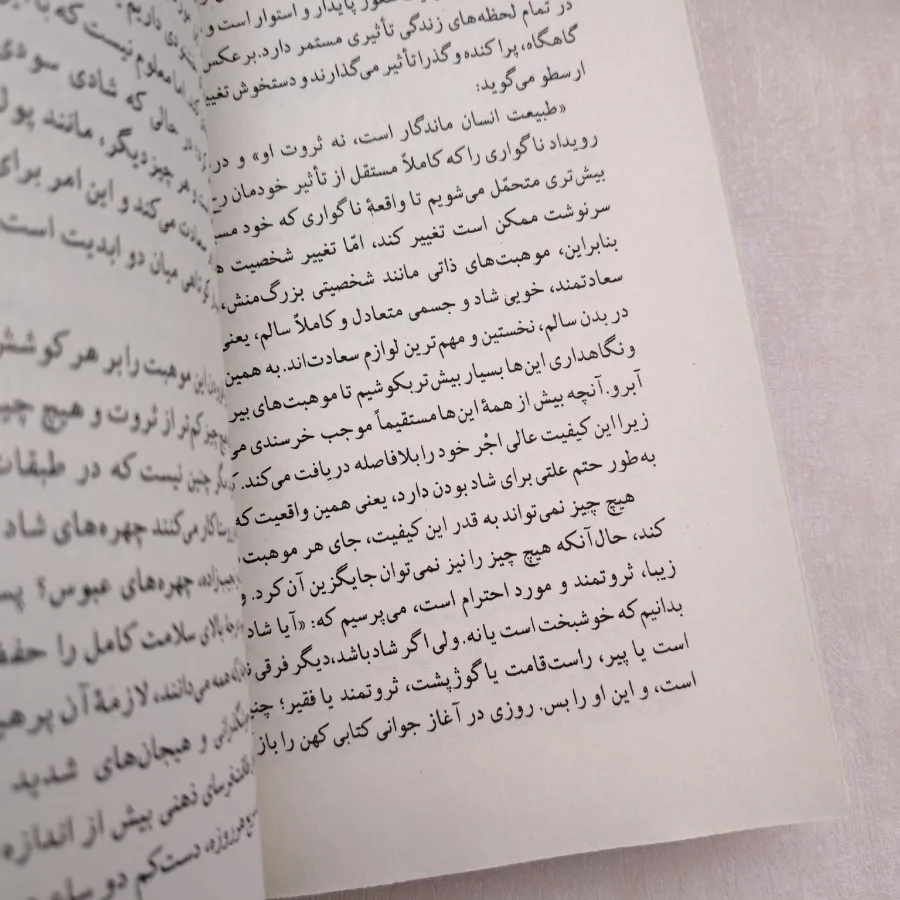 پایدار و استوار است و
در تمام لحظه‌های زندگی تأثیری مستمر دارد. برعکس
گاهگاه، پراکنده و گذرا تأثیر می‌گذارند و دستخوش تغییر
ارسطو می‌گوید:
«طبیعت انسان ماندگار است، نه ثروت او» و در
رویداد ناگواری را که کاملاً مستقل از تأثیر خودمان رخ
بیش‌تری متحمّل می‌شویم تا واقعهٔ ناگواری که خود
سرنوشت ممکن است تغییر کند، امّا تغییر شخصیت
بنابراین، موهبت‌های ذاتی مانند شخصیتی بزرگ‌منش،
سعادتمند، خویی شاد و جسمی متعادل و کاملاً سالم، یعنی
در بدن سالم، نخستین و مهم‌ترین لوازم سعادت‌اند. به همین
و نگاهداری این‌ها بسیار بیش‌تر بکوشیم تا موهبت‌های
آبرو. آنچه بیش از همهٔ این‌ها مستقیماً موجب خرسندی
زیرا این کیفیت عالی اجْر خود را بلافاصله دریافت می‌کند.
به‌طور حتم علتی برای شاد بودن دارد، یعنی همین واقعیت که
هیچ چیز نمی‌تواند به قدر این کیفیت، جای هر موهبت
کند، حال‌آنکه هیچ چیز را نیز نمی‌توان جایگزین آن کرد.
زیبا، ثروتمند و مورد احترام است، می‌پرسیم که: «آیا شاد
بدانیم که خوشبخت است یا نه. ولی اگر شاد باشد، دیگر فرقی
است یا پیر، راست‌قامت یا گوژپشت، ثروتمند یا فقیر؛
است، و این او را بس. روزی در آغاز جوانی کتابی کهن را باز
در حالی که شادی سودی
هر چیز دیگر، مانند پول
سعادت می‌کند و این امر برای
میان دو ابدیت است
این موهبت را بر هر کوشش
کم‌تر از ثروت و هیچ چیز
چنین نیست که در طبقات
کار می‌کنند چهره‌های شاد
چهره‌های عبوس؟ پس
بالای سلامت کامل را حفظ
همه می‌دانند، لازمهٔ آن پرهیز
و هیجان‌های شدید
ذهنی بیش از اندازه
هر روزه، دست‌کم دو